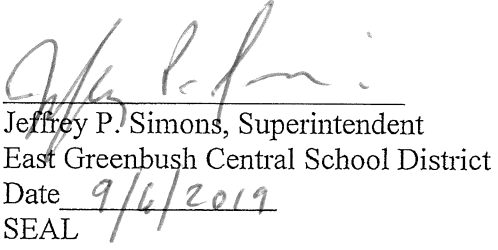 Jeffrey P. Simons, Superintendent
East Greenbush Central School District
Date 9/6/2019
SEAL